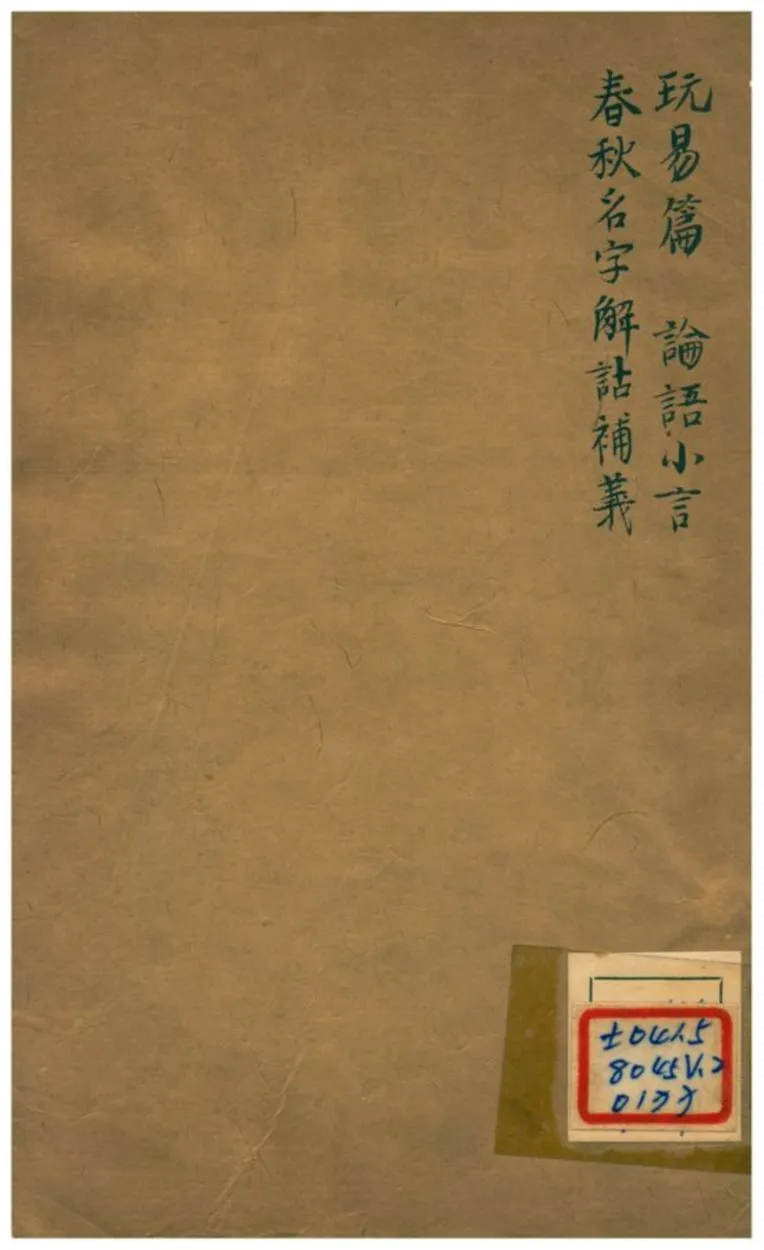 玩易篇 論語小言
春秋名字解詁補義
8045V.2